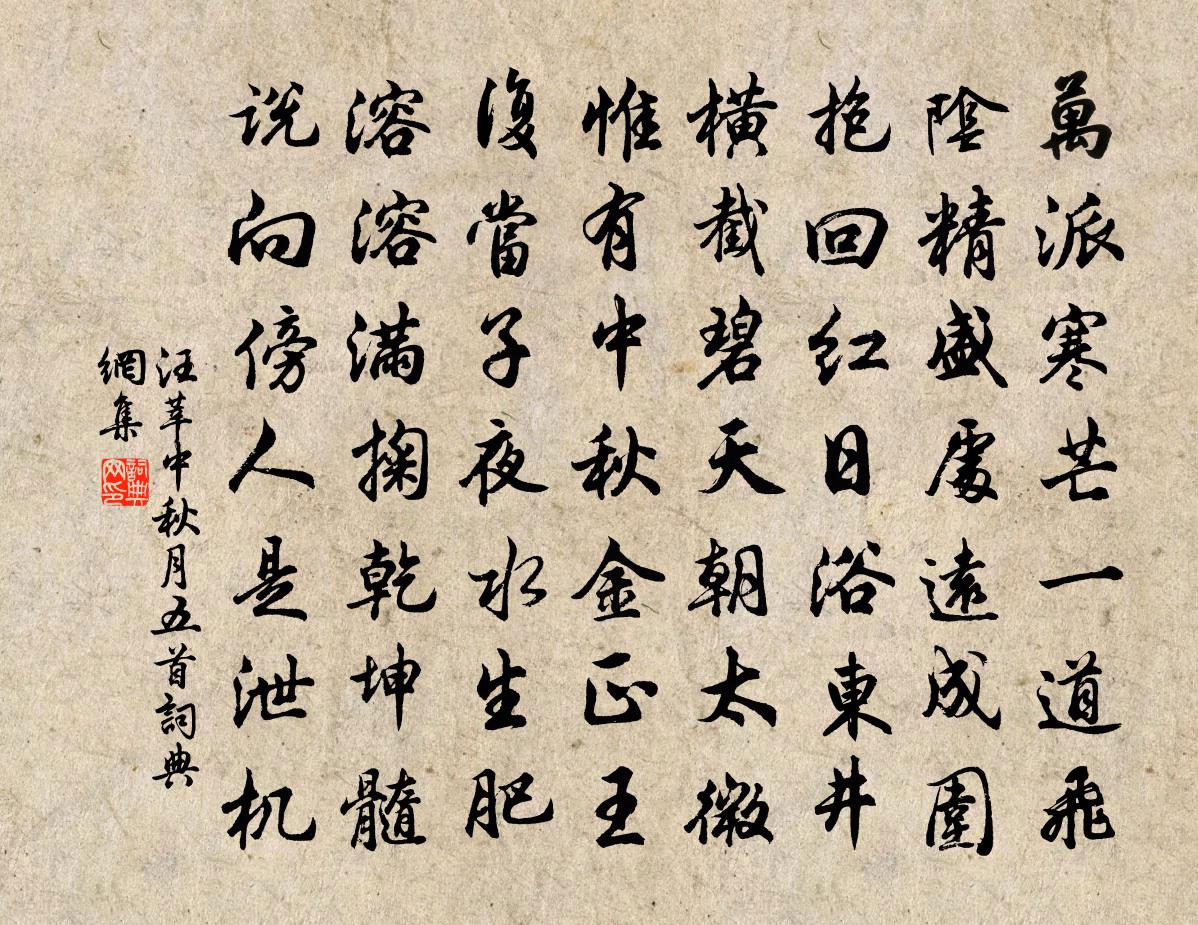 萬派寒芒一道飛
陰精盛處遠成圍
抱回紅日浴東井
橫截碧天朝太微
惟有中秋金正王
復當子夜水生肥
溶溶滿掬乾坤髓
说向傍人是泄机
汪莘中秋月五首詞典
網集
詞典
网印